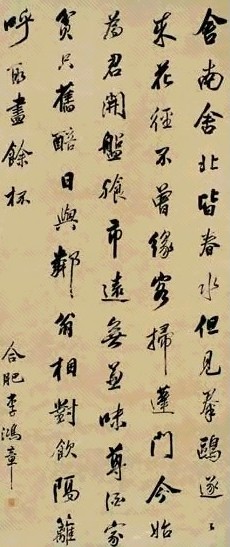 舍南舍北皆春水但見羣鷗逐〻
來花徑不曾緣客掃蓬門今始
為君開盤飱市遠無兼味尊酒家
貧只舊醅日與鄰翁相對飲隔籬
呼取盡餘杯
合肥李鴻章